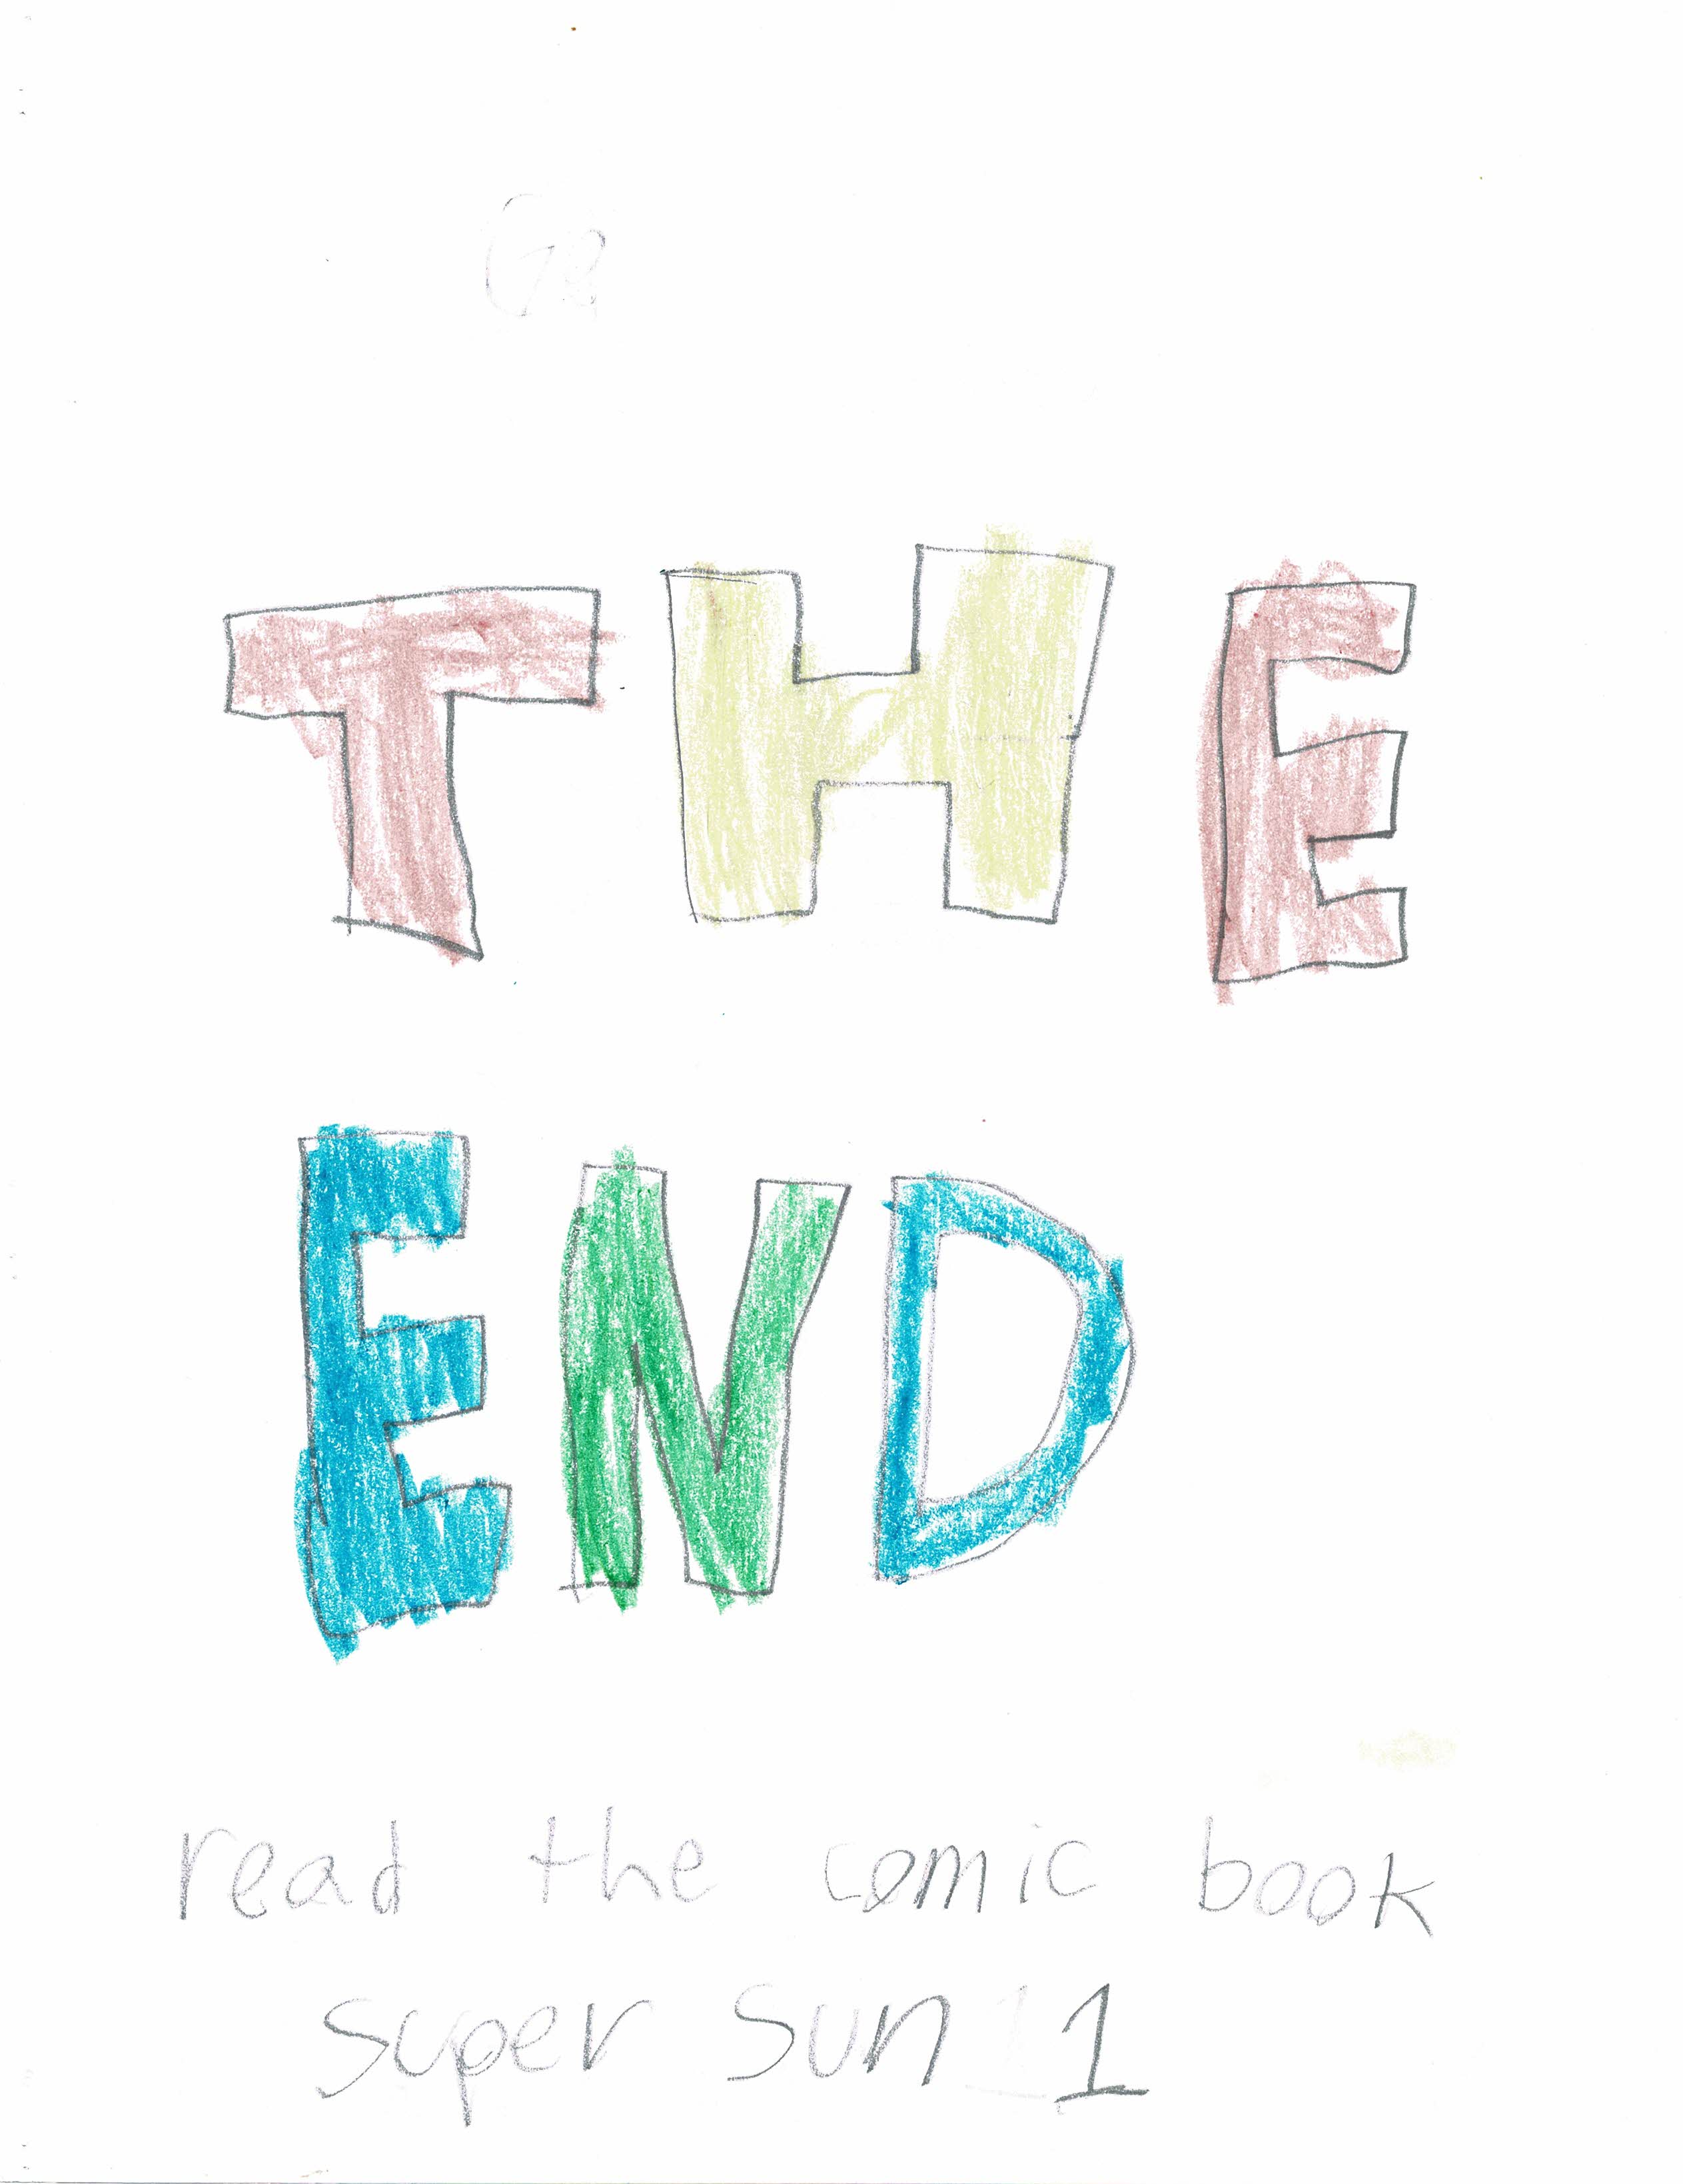 THE
END
read the comic book
super sun 1